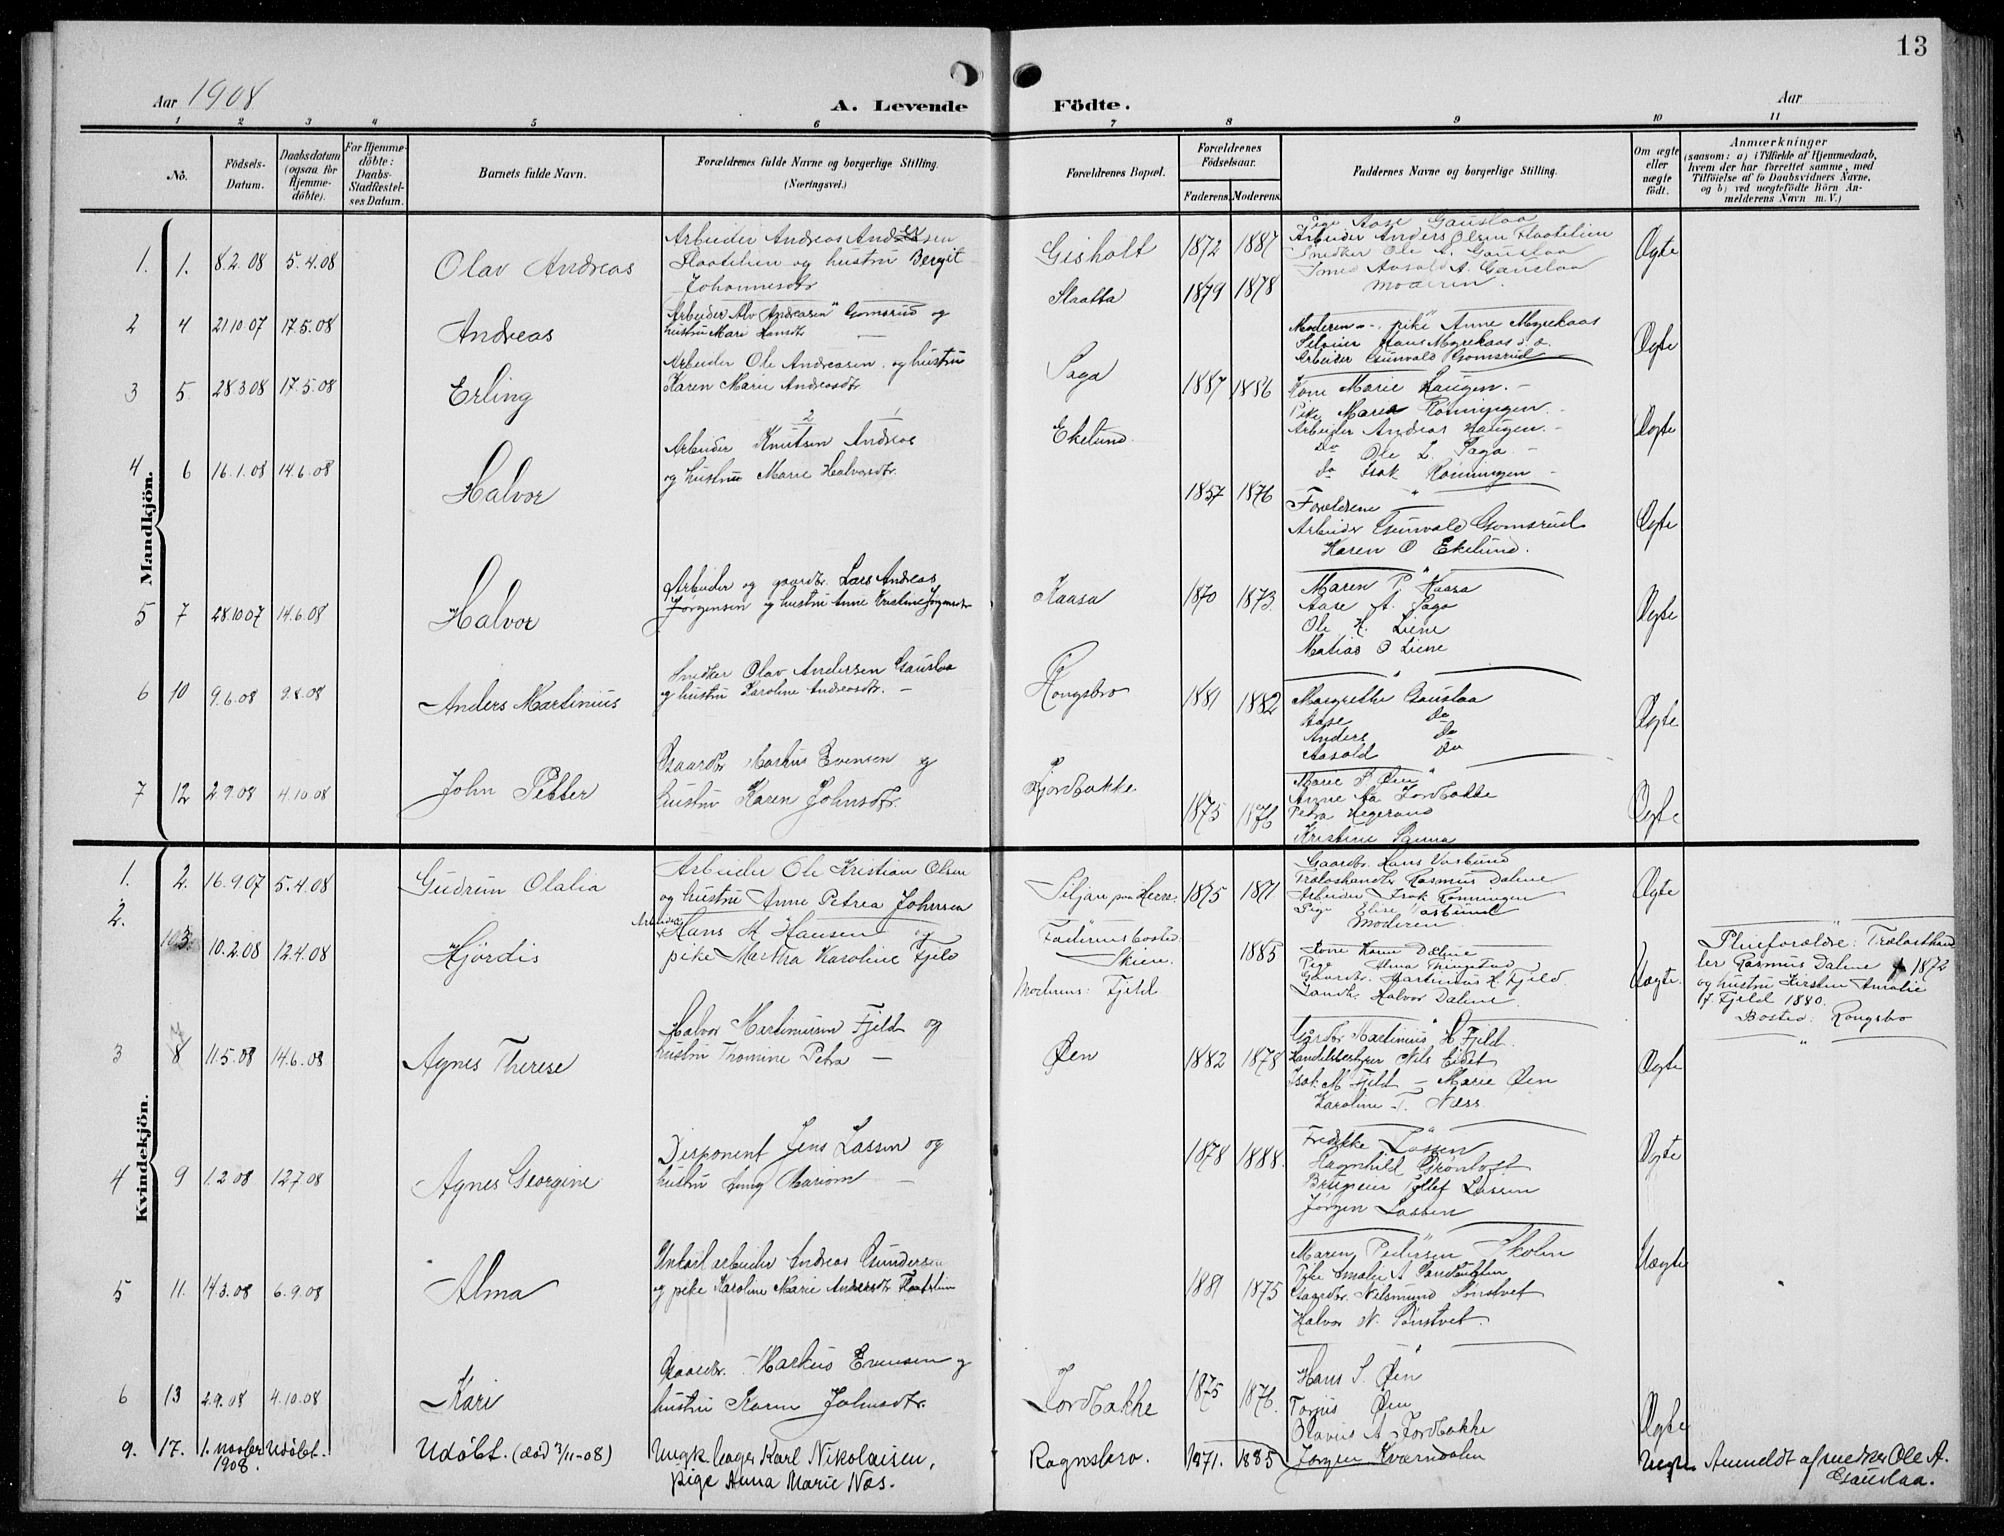 13
Aar 1908
A. Levende Födte.
Aar
1 2 3 4 5 6 7 8 9 10 11
No.
Födsels-Datum.
Daabsdatum (ogsaa for Hjemme-döbte).
For Hjemme-döbte: Daabs-Stadfæstel-ses Datum.
Barnets fulde Navn.
Forældrenes fulde Navne og borgerlige Stilling. (Næringsvei.)
Forældrenes Bopæl.
Forældrenes Födselsaar.
Faderens. Moderens.
Faddernes Navne og borgerlige Stilling.
Om ægte eller uægte födt.
Anmærkninger
(saasom: a) i Tilfælde af Hjemmedaab, hvem der har forrettet samme, med Tilföielse af to Daabsvidners Navne, og b) ved uægtefödte Börn An-melderens Navn m. V.)
Mandkjön.
1. 1. 8.2.08 5.4.08 Olav Andreas
Arbeider Andreas Andersen
Flaatelien og hustru Bergit
Johannesdtr
Gisholt 1872 1887
Pige Aase Gauslaa
Arbeider Anders Olsen Flaatelien
Snedker Ole A. Gauslaa
Smed Aasold A. Gauslaa
Moderen.
Ægte
2 4 21.10.07 17.5.08 Andreas
Arbeider Alv Andreasen Gomsrud og
hustru Mari Hansdtr
Slaatta 1879 1878
Moderen - pike Anne Myrekaas
Hans Myrekaas
Arbeider Gunvald Gomsrud
Ægte
3 5 28.3.08 17.5.08 Erling
Arbeider Ole Andreasen og hustru
Karen Marie Andreasdtr
Saga 1887 1886
Kone Marie Haugen.
Pike Marie Rönningen
Arbeider Andreas Haugen.
Do Ole L. Saga
do Isak Rönningen
Ægte
4 6 16.1.08 14.6.08 Halvor
2 1
Arbeider Knutsen Andreas
og hustru Marie Halvorsdtr.
Ekelund. 1857 1876
Forældrene
Arbeider Gunvald Gomsrud
Karen O Ekelund.
Ægte
5 7 28.10.07 14.6.08 Halvor
Arbeider og gaardbr. Lars Andreas
Jørgensen og hustru Anne Kristine Jørgensdtr
Kaasa 1870 1873
Maren P. Kaasa
Aase A. Saga
Ole H. Liene
Matias O Liene
Ægte
6 10 9.6.08 9.8.08 Anders Martinius
Snedker Olav Andersen Gauslaa
og hustru Karoline Andreasdtr.
Rongsbro 1881 1882
Margrethe Gauslaa
Aase Do
Anders Do
Aasold Do
Ægte
7 12 2.9.08 4.10.08 John Petter
Gaardbr Markus Evensen og
hustru Karen Johnsdtr.
1875 1876
Marie S Øen
Anne Aa Jordbakke
Petra Hegerand
Kristine
Ægte
Kvindekjön.
1. 2. 16.9.07 5.4.08 Gudrun Olalia
Arbeider Ole Kristian Olsen
og hustru Anne Petrea Johnsen
Siljan paa Heere. 1875 1871
Gaardbr. Hans Vasbund
Trælasthandler Rasmus Dalene
Arbeider Isak Rönningen
Pige Elise Vasbund
Moderen.
Ægte
2. 3 10.2.08 12.4.08 Hjördis
Arbeider Hans M Hansen og
pike Martha Karoline Fjeld
Faderens bosted: Skien.
Moderens: Fjeld
1885
Kone Karen Dalene
Pige Alma Thingstad
Gaardbr. Martinius H. Fjeld.
Landh. Halvor Dalene.
Uægte.
Pleieforældre: Trælasthand
ler Rasmus Dalene f 1872
og hustru Kirsten Amalie
f. Fjeld 1880.
Bosted: Rongsbro
3 8 11.5.08 14.6.08 Agnes Therese
Halvor Martinussen Fjeld og
hustru Tromine Petra
Øen 1882 1878
Gårdbr Martinius H Fjeld.
Handelsbestyrer Nils Eidet
Isak M Fjeld - Marie Øen
Karoline T. Næss.
Ægte
4 9 1.2.08 12.7.08 Agnes Georgine
Disponent Jens Lassen og
hustru Mariom
1878 1888.
Fredrikke Lassen
Ragnhild Grönlost
Lassen
Jörgen Lassen
Ægte
5 11. 14.3.08 6.9.08 Alma
arbeider Andreas Gundersen
og pike Karoline Marie Andersdtr Flaatelien
1881 1875
Maren Pedersen Skolen
Pike Amalie A
Gaardbr. Nilsmund Sönstvet
Halvor N. Sønstvet.
Uægte
6 13 2.9.08 4.10.08 Kari
Gaardbr. Markus Evensen og
hustru Karen Johnsdtr.
Jordbakke 1875 1876.
Hans S. Øen
Torjus Øen
Olavus A Jordbakke
Ægte
9. 17. 1. novbr 1908. Udöbt. Udöbt. (död 3/11-08)
Ungk. bager Karl Nikolaisen,
pige Anna Marie Nes.
Rognsbro. 1871. 1885 Jörgen Kværndalen
Uegte Anmeldt af snedker Ole A. Gauslaa.